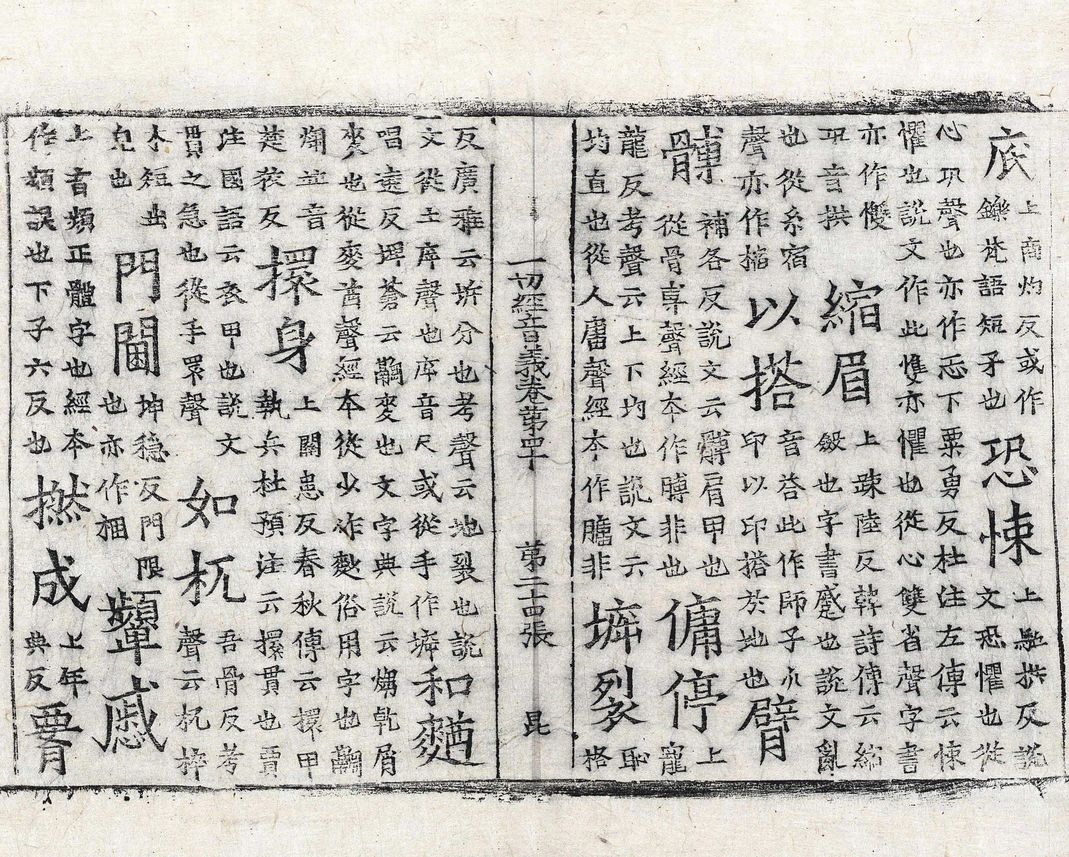 底上商灼反或作
鑠梵語短矛也恐悚上拱反說
文恐懼也從
心巩聲也亦作忎下粟勇反杜注左傳云悚
懼也說文作此愯亦懼也從心雙省聲字書
亦作㦼
巩音拱縮眉上踈陸反韓詩傳云縮
斂也字書蹙也說文亂
也從糸宿
聲亦作摍以搭音荅此作師子爪
印以印搭於地也臂
髆補各反說文云髆肩甲也
從骨尃聲經本作膊非也傭停上
寵
龍反考聲云上下均也說文云
均直也從人庸聲經本作非裂恥
格
一切經音義卷第四十 第二十四張 昆
反廣雅云坼分也考聲云地裂也說
文從土㡿聲也㡿音尺或從手作和䴬
唱遶反埤蒼云麥也文字典說云乾屑
麥也從麥酋聲經本從少作麨俗用字也
並音
楚狡反擐身上關患反春秋傳云擐甲
執兵杜預注云擐貫也賈
注國語云衣甲也說文
貫之急也從手睘聲如杌吾骨反考
聲云杌梓
木短出
皃也門閫坤穩反門限
也亦作梱顰戚
上音頻正體字也經本
作頻誤也下子六反也撚成上年
典反膋